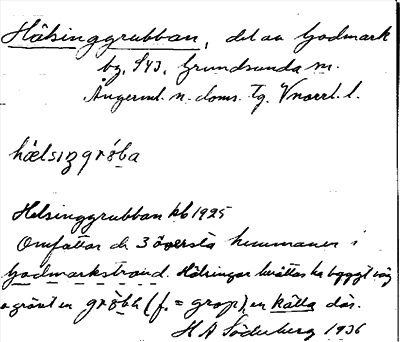 Hälsinggrubban, del av Godmark
by, S43, Grundsunda sn.
Ångerml. n. doms. tg. Vnorrl. l.
hælsıŋgrǿba
Helsinggrubban kb 1925
Omfattar de 3 översta hemmanen i
Godmarkstrand. Hälsingar berättas ha byggt väg
o grävt en grǿbb (f. = grop), en källa där.
H A Söderberg 1936